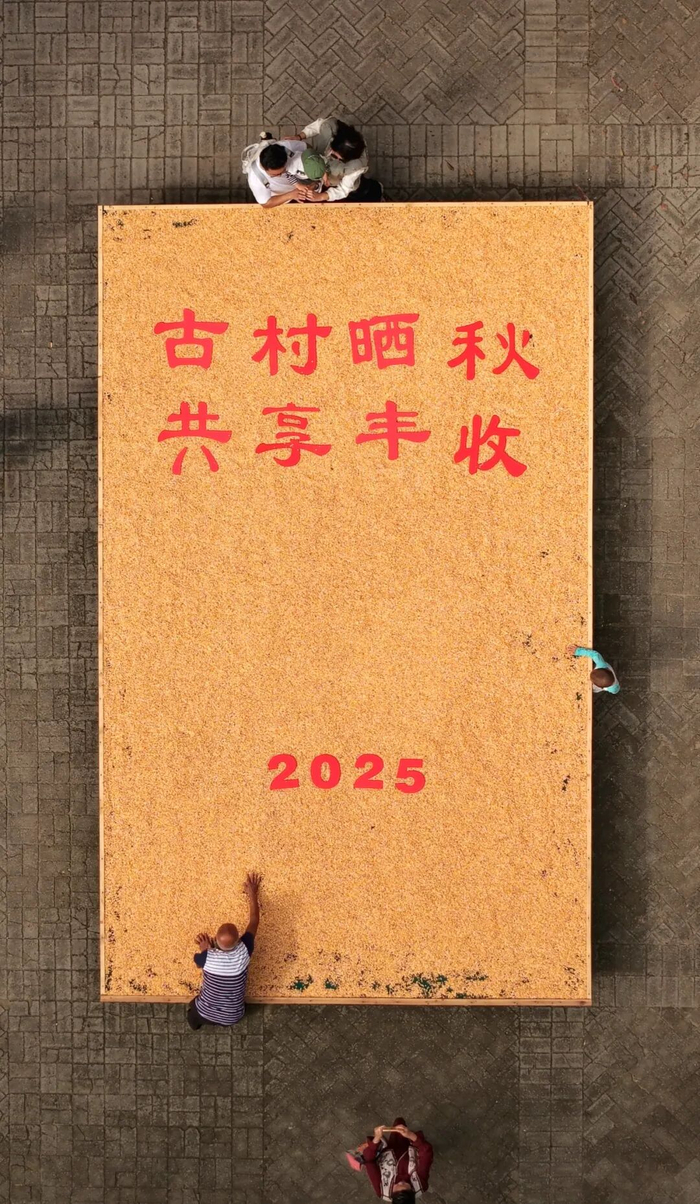 古村晒秋
共享丰收
2025